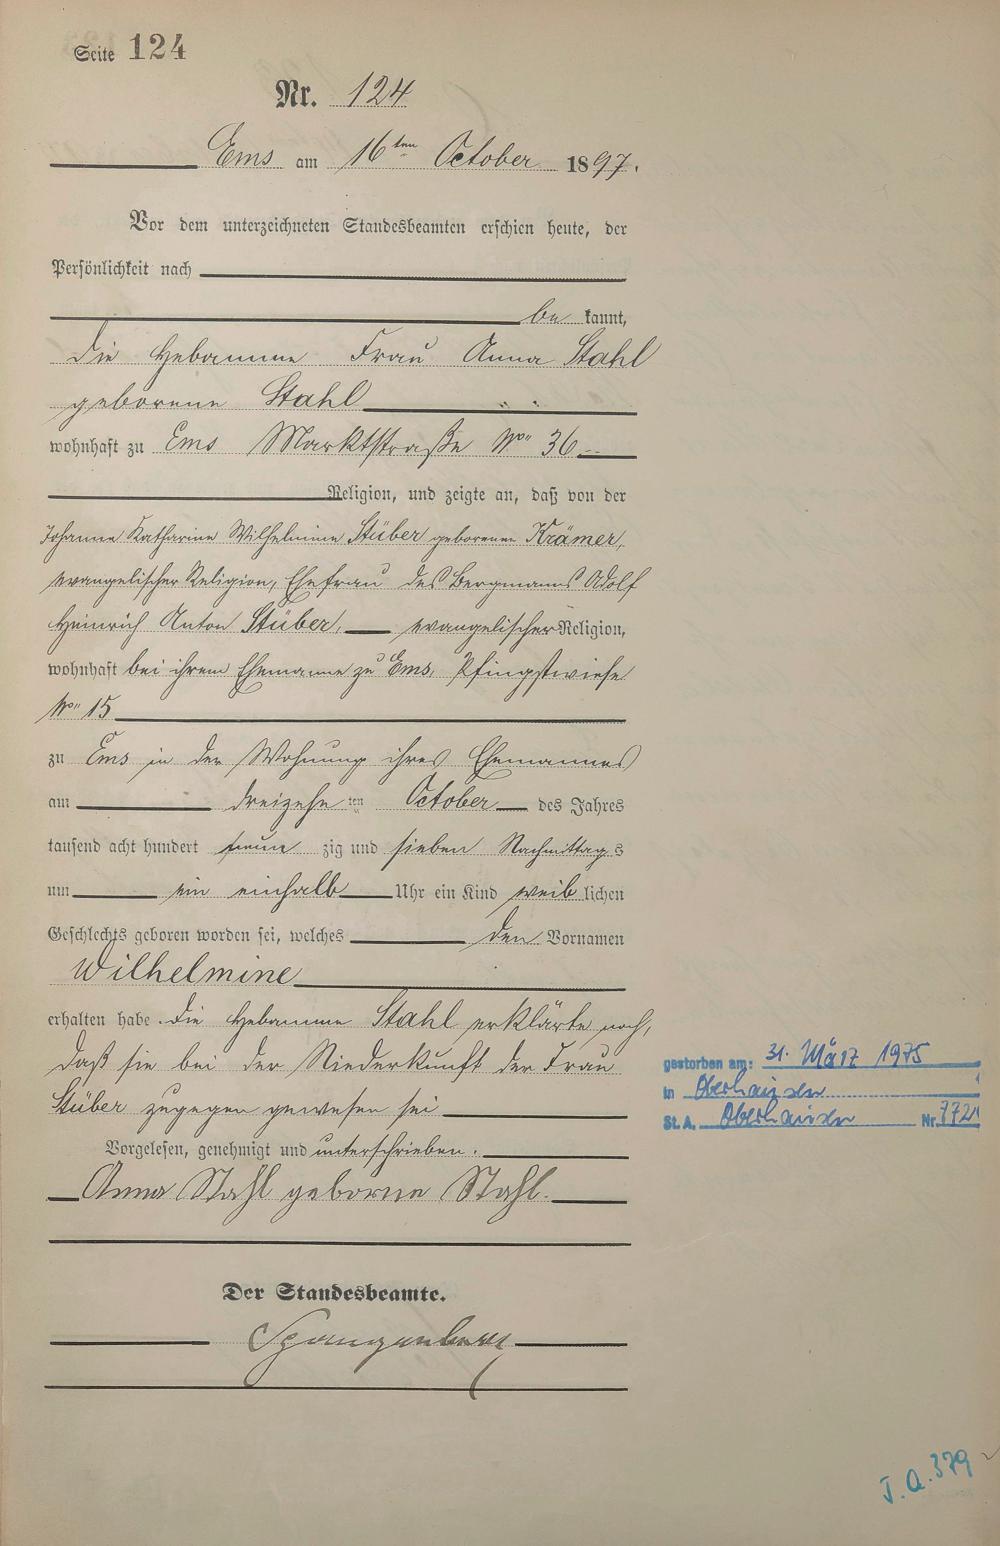 Seite 124
Nr. 124
Ems am 16ten October 1897.
Vor dem unterzeichneten Standesbeamten erschien heute, der
Persönlichkeit nach
be kannt,
die Hebamme Frau Anna Stahl
geborene Stahl
wohnhaft zu Ems Marktstraße No 36
Religion, und zeigte an, daß von der
Johanne Katharine Wilhelmine Stüber geborenen Krämer,
evangelischer Religion, Ehefrau des Bergmanns Adolf
Heinrich Anton Stüber, evangelischer Religion,
wohnhaft bei ihrem Ehemanne zu Ems, Pfingstwiese
No 15
zu Ems in der Wohnung ihres Ehemannes
am dreizehnten October des Jahres
tausend acht hundert neun zig und sieben Nachmittags
um ein einhalb Uhr ein Kind weiblichen
Geschlechts geboren worden sei, welches den Vornamen
Wilhelmine
erhalten habe. Die Hebamme Stahl erklärte noch,
daß sie bei der Niederkunft der Frau
Stüber zugegen gewesen sei
Vorgelesen, genehmigt und unterschrieben.
Anna Stahl geborne Stahl.
Der Standesbeamte.
Spangenberg
gestorben am: 31. März 1975
in Oberhausen
St. A. Oberhausen Nr. 772
J. A. 379